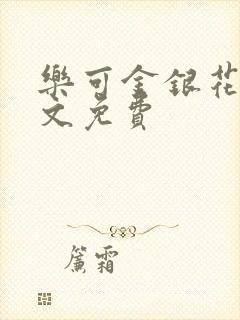 樂可金銀花
文免費
簾霜